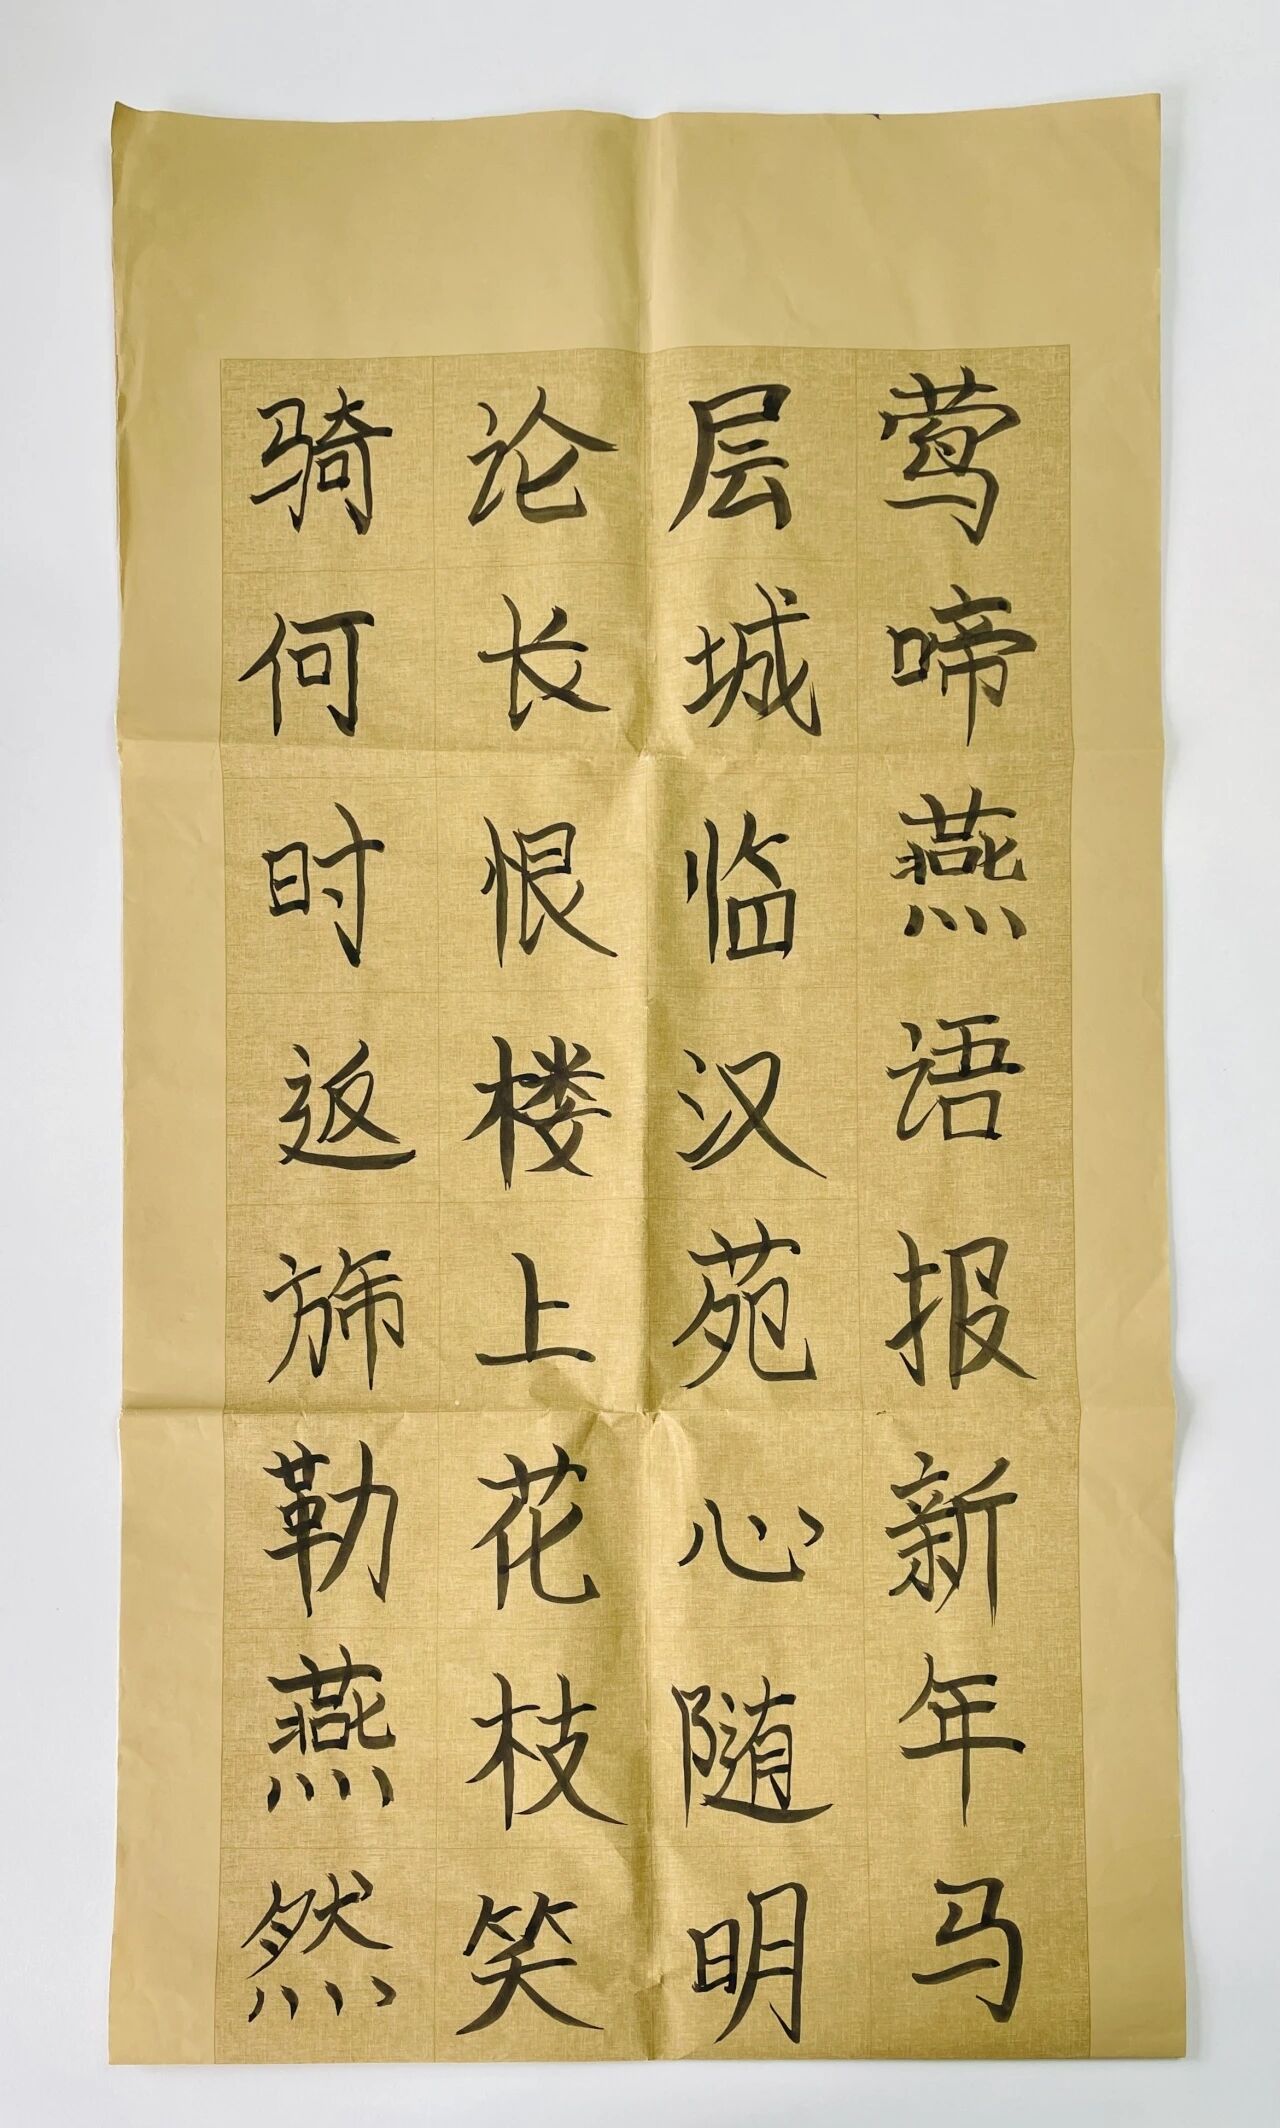 莺啼燕语报新年马
层城临汉苑心随明
论长恨楼上花枝笑
骑何时返旆勒燕然